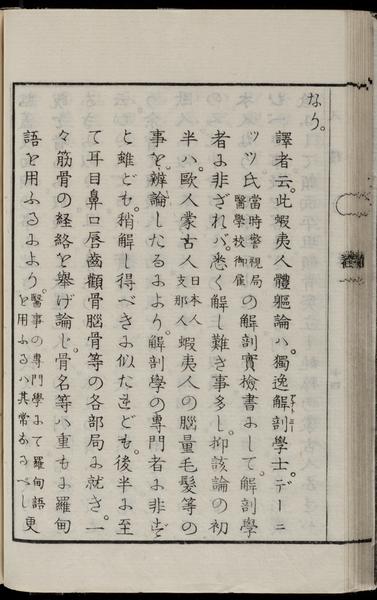 なり。
譯者云。此蝦夷人體軀論ハ。獨逸解剖學士。デーニ
ッツ氏當時警視局醫學校御雇の解剖實檢書よして。解剖學
者よ非ざれバ。悉く解し難き事多し。抑該論の初
半ハ。歐人蒙古人日本人支那人蝦夷人の腦量毛髮等の
事を辨論したるより。解剖學の專門者よ非ずど
と雖ども。稍解し得べきよ似たれども。後半よ至
て耳目鼻口唇齒顴骨腦骨等の各部局よ就き。一
々筋骨の経絡を擧げ論じ。骨名等ハ重もよ羅甸
語を用ふるより。醫事の專門學よて羅甸語を用ふるハ其常なるべし更